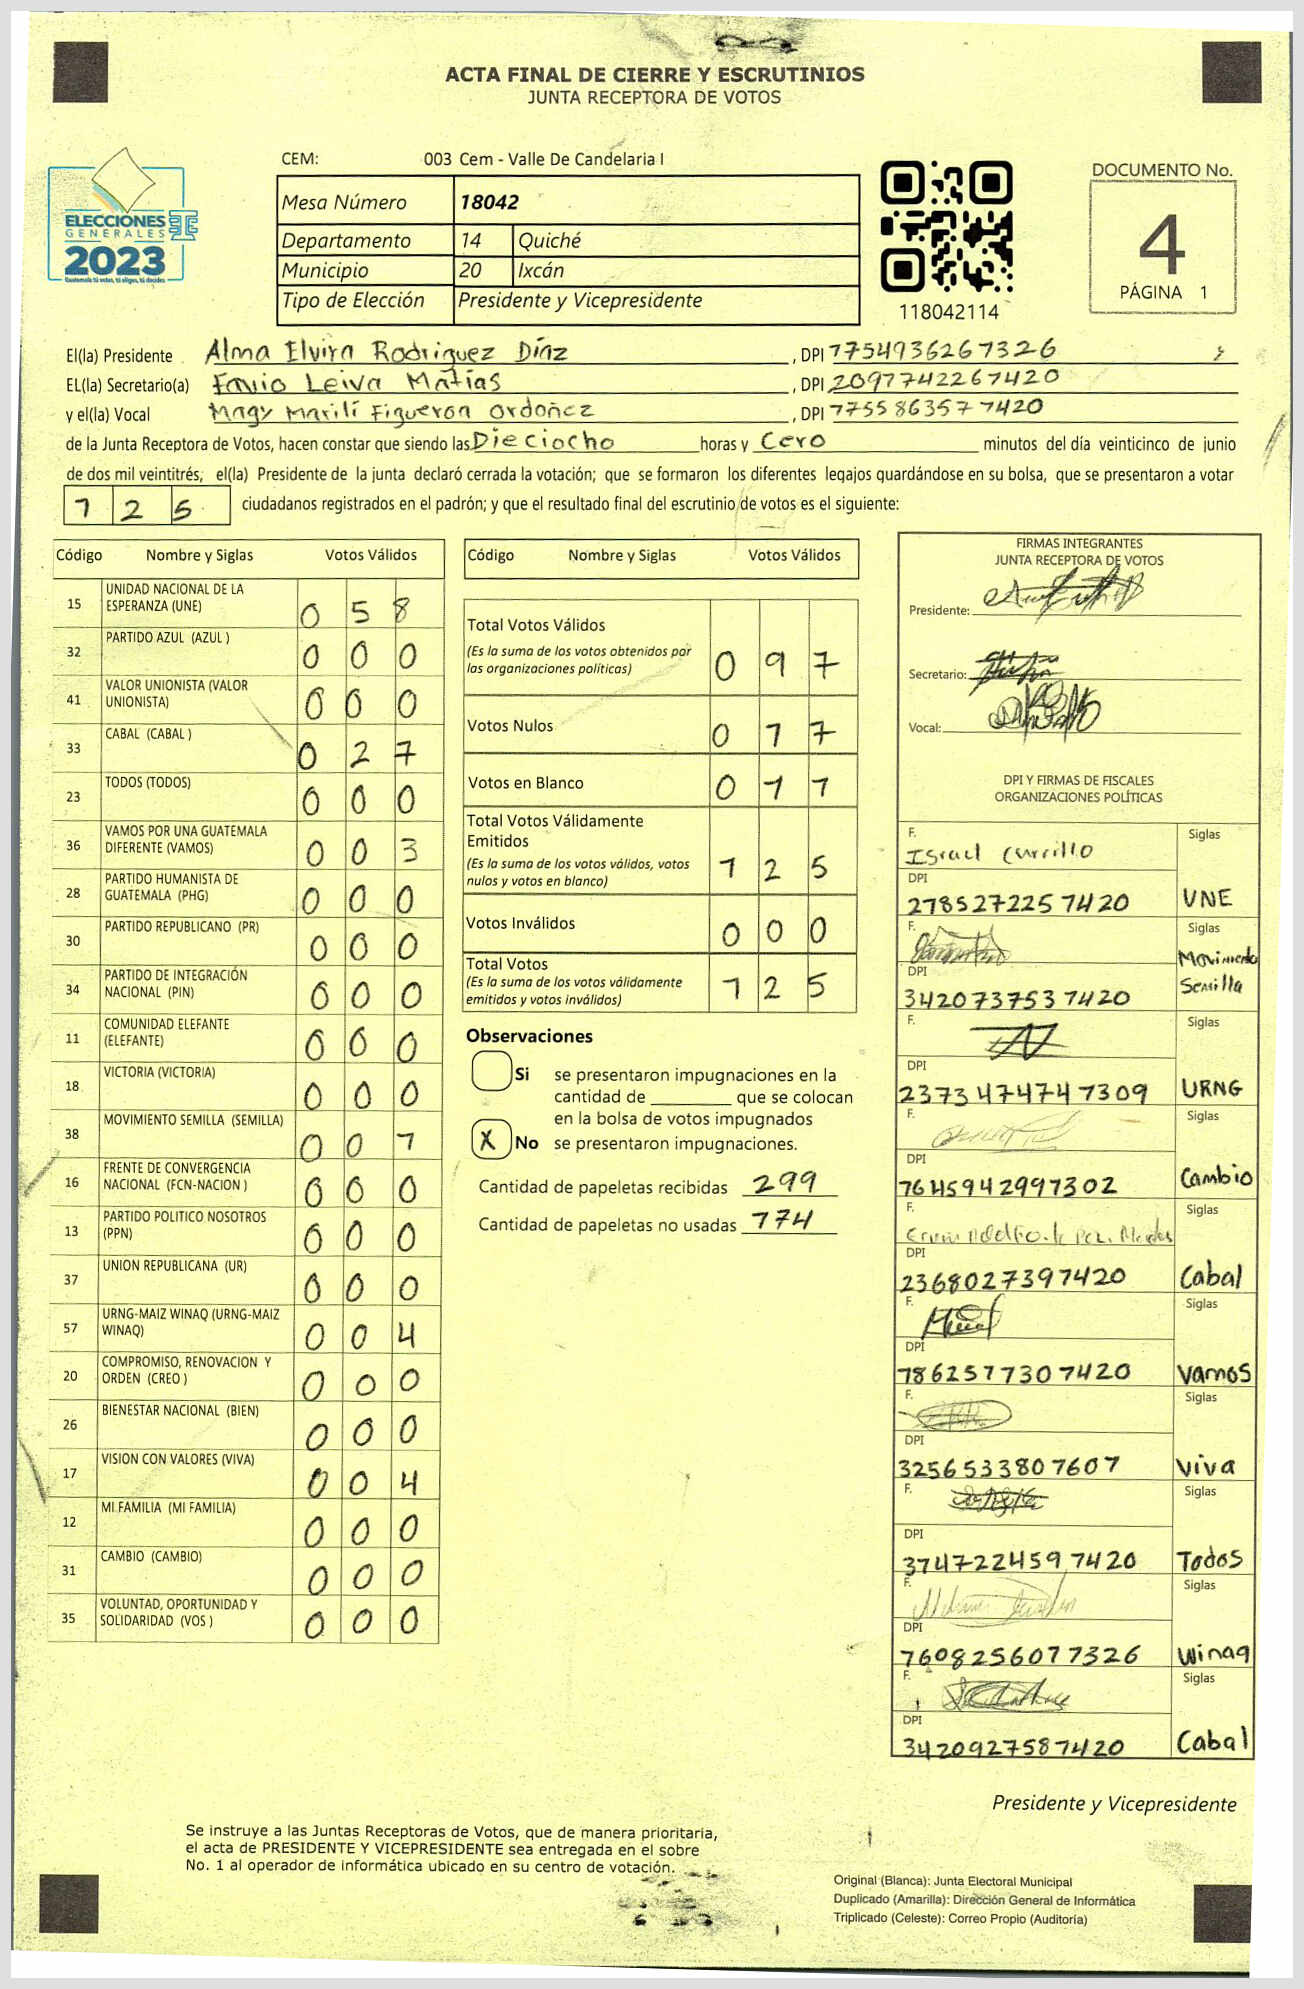 ACTA FINAL DE CIERRE Y ESCRUTINIOS
JUNTA RECEPTORA DE VOTOS
CEM: 003 Cem - Valle De Candelaria I
ELECCIONES
GENERALES
2023
Guatemala tú votas, tú eliges, tú decides
Mesa Número 18042
Departamento 14 Quiché
Municipio 20 Ixcán
Tipo de Elección Presidente y Vicepresidente
118042114
DOCUMENTO No.
4
PÁGINA 1
El(la) Presidente Alma Elvira Rodriguez Díaz , DPI 1754936261326
EL(la) Secretario(a) Favio Leiva Matías , DPI 2097742261420
y el(la) Vocal Magy Marilí Figueroa Ordoñez , DPI 1755863571420
de la Junta Receptora de Votos, hacen constar que siendo las Dieciocho horas y Cero minutos del día veinticinco de junio
de dos mil veintitrés, el(la) Presidente de la junta declaró cerrada la votación; que se formaron los diferentes legajos guardándose en su bolsa, que se presentaron a votar
1 2 5 ciudadanos registrados en el padrón; y que el resultado final del escrutinio de votos es el siguiente:
Código Nombre y Siglas Votos Válidos
15 UNIDAD NACIONAL DE LA ESPERANZA (UNE) 0 5 8
32 PARTIDO AZUL (AZUL ) 0 0 0
41 VALOR UNIONISTA (VALOR UNIONISTA) 0 0 0
33 CABAL (CABAL ) 0 2 7
23 TODOS (TODOS) 0 0 0
36 VAMOS POR UNA GUATEMALA DIFERENTE (VAMOS) 0 0 3
28 PARTIDO HUMANISTA DE GUATEMALA (PHG) 0 0 0
30 PARTIDO REPUBLICANO (PR) 0 0 0
34 PARTIDO DE INTEGRACIÓN NACIONAL (PIN) 0 0 0
11 COMUNIDAD ELEFANTE (ELEFANTE) 0 0 0
18 VICTORIA (VICTORIA) 0 0 0
38 MOVIMIENTO SEMILLA (SEMILLA) 0 0 1
16 FRENTE DE CONVERGENCIA NACIONAL (FCN-NACION ) 0 0 0
13 PARTIDO POLITICO NOSOTROS (PPN) 0 0 0
37 UNION REPUBLICANA (UR) 0 0 0
57 URNG-MAIZ WINAQ (URNG-MAIZ WINAQ) 0 0 4
20 COMPROMISO, RENOVACION Y ORDEN (CREO ) 0 0 0
26 BIENESTAR NACIONAL (BIEN) 0 0 0
17 VISION CON VALORES (VIVA) 0 0 4
12 MI FAMILIA (MI FAMILIA) 0 0 0
31 CAMBIO (CAMBIO) 0 0 0
35 VOLUNTAD, OPORTUNIDAD Y SOLIDARIDAD (VOS ) 0 0 0
Código Nombre y Siglas Votos Válidos
Total Votos Válidos
(Es la suma de los votos obtenidos por
las organizaciones políticas) 0 9 7
Votos Nulos 0 1 7
Votos en Blanco 0 1 1
Total Votos Válidamente
Emitidos
(Es la suma de los votos válidos, votos
nulos y votos en blanco) 1 2 5
Votos Inválidos 0 0 0
Total Votos
(Es la suma de los votos válidamente
emitidos y votos inválidos) 1 2 5
Observaciones
Si se presentaron impugnaciones en la
cantidad de ________ que se colocan
en la bolsa de votos impugnados
X No se presentaron impugnaciones.
Cantidad de papeletas recibidas 299
Cantidad de papeletas no usadas 174
FIRMAS INTEGRANTES
JUNTA RECEPTORA DE VOTOS
Presidente:
Secretario:
Vocal:
DPI Y FIRMAS DE FISCALES
ORGANIZACIONES POLÍTICAS
F. Israel Siglas
DPI 2785272251420 UNE
F. Siglas
DPI 3420737531420 Movimiento Semilla
F. Siglas
DPI 2373474741309 URNG
F. Siglas
DPI 1645942991302 Cambio
F. Siglas
DPI 2368027391420 Cabal
F. Siglas
DPI 1862577301420 Vamos
F. Siglas
DPI 3256533801601 Viva
F. Siglas
DPI 3747224591420 Todos
F. Siglas
DPI 1608256071326 Winaq
F. Siglas
DPI 3420927581420 Cabal
Presidente y Vicepresidente
Se instruye a las Juntas Receptoras de Votos, que de manera prioritaria,
el acta de PRESIDENTE Y VICEPRESIDENTE sea entregada en el sobre
No. 1 al operador de informática ubicado en su centro de votación.
Original (Blanca): Junta Electoral Municipal
Duplicado (Amarilla): Dirección General de Informática
Triplicado (Celeste): Correo Propio (Auditoría)